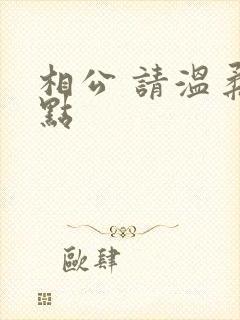 相公 請溫柔
點
歐肆